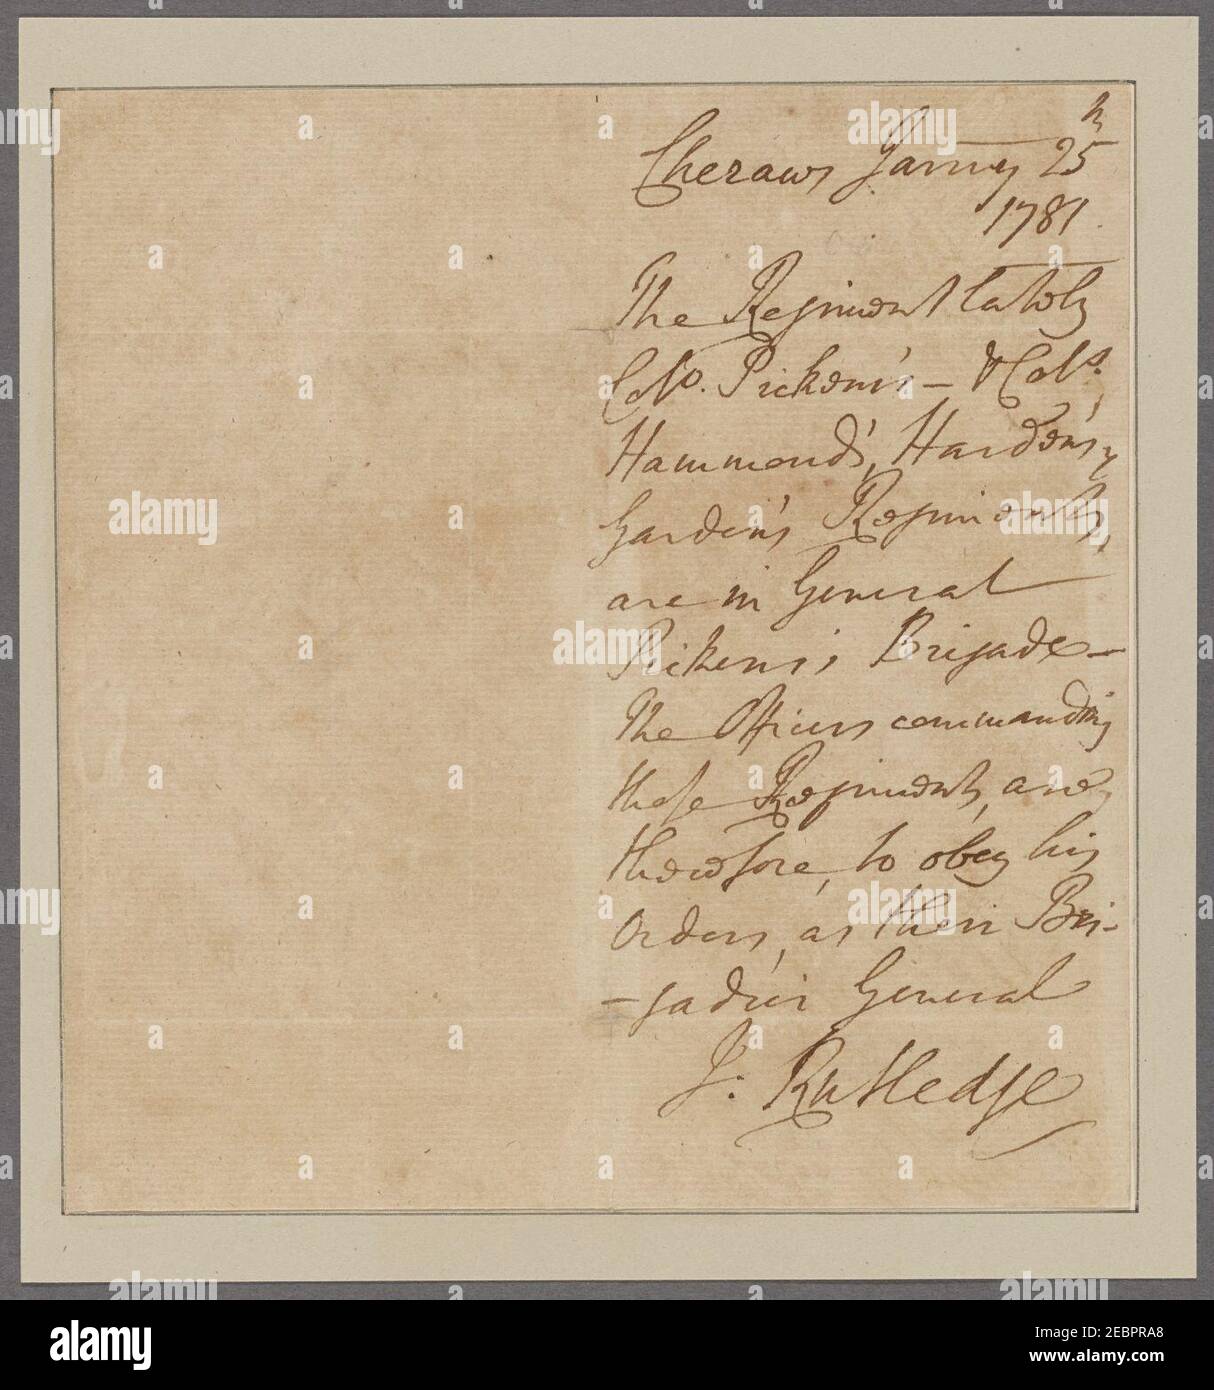 Cheraws Janry 25th
1781.
The Regiment lately
Colo. Pickens's — & Cols.
Hammond's, Harden's, &
Garden's Regiments,
are in General
Pickens's Brigade —
The Officers commanding
those Regiments, are,
therefore, to obey his
Orders, as their Bri-
-gadier General
J. Rutledge
alamy
Image ID: 2EBPRA8
www.alamy.com